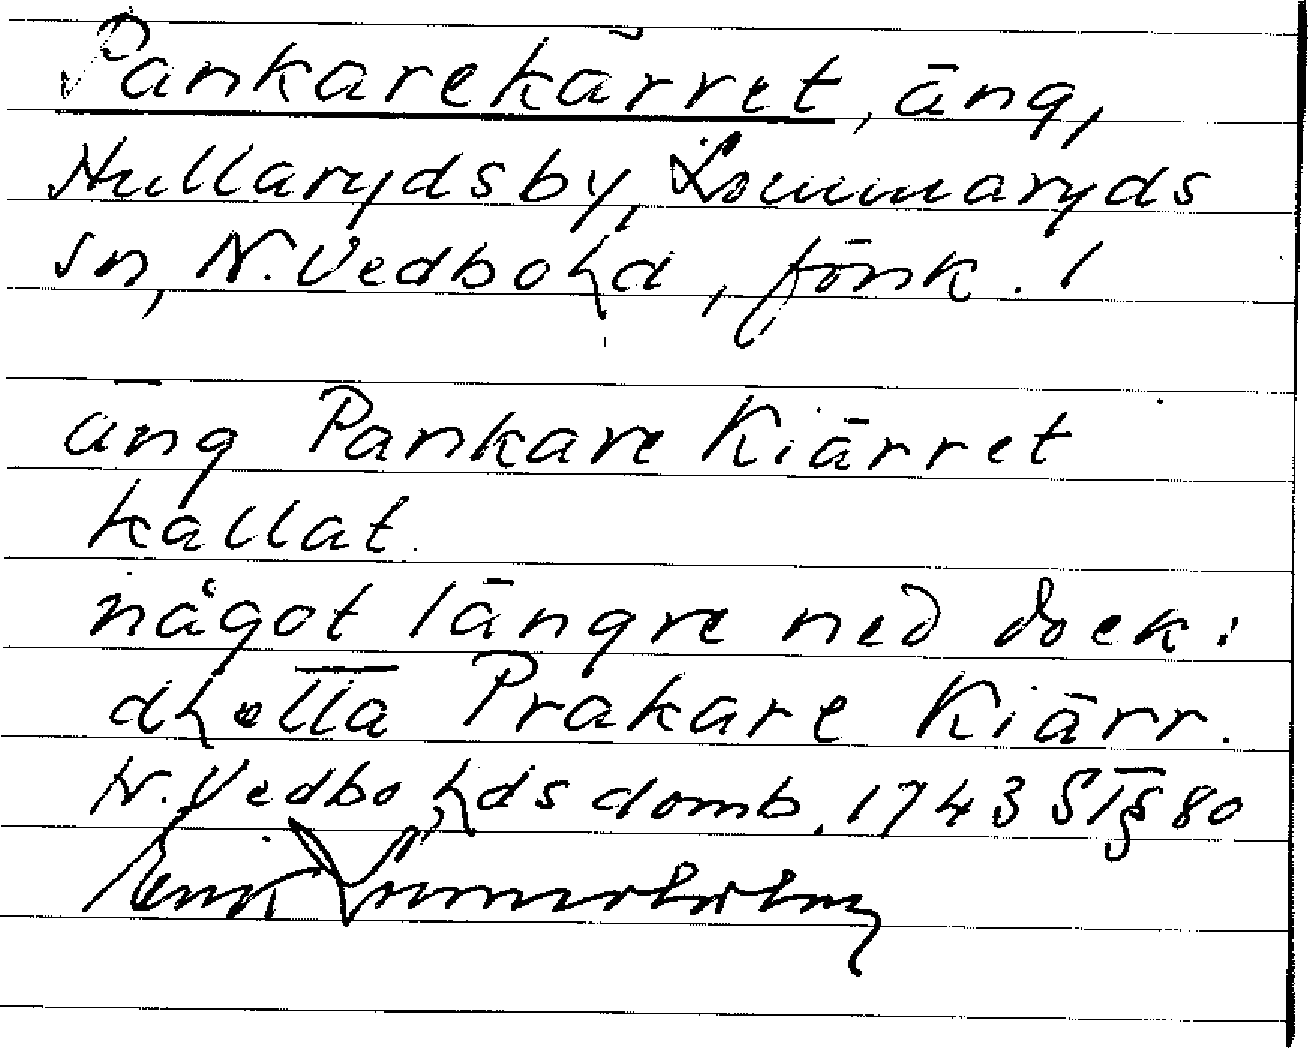 Pankarekärret, äng,
Hullarydsby, Lommaryds
sn, N. Vedbohd, Jönk. l
äng Pankare Kiärret
kallat.
något längre ned dock:
dhetta Prakare Kiärr.
N. Vedbohds domb. 1743 ST § 80